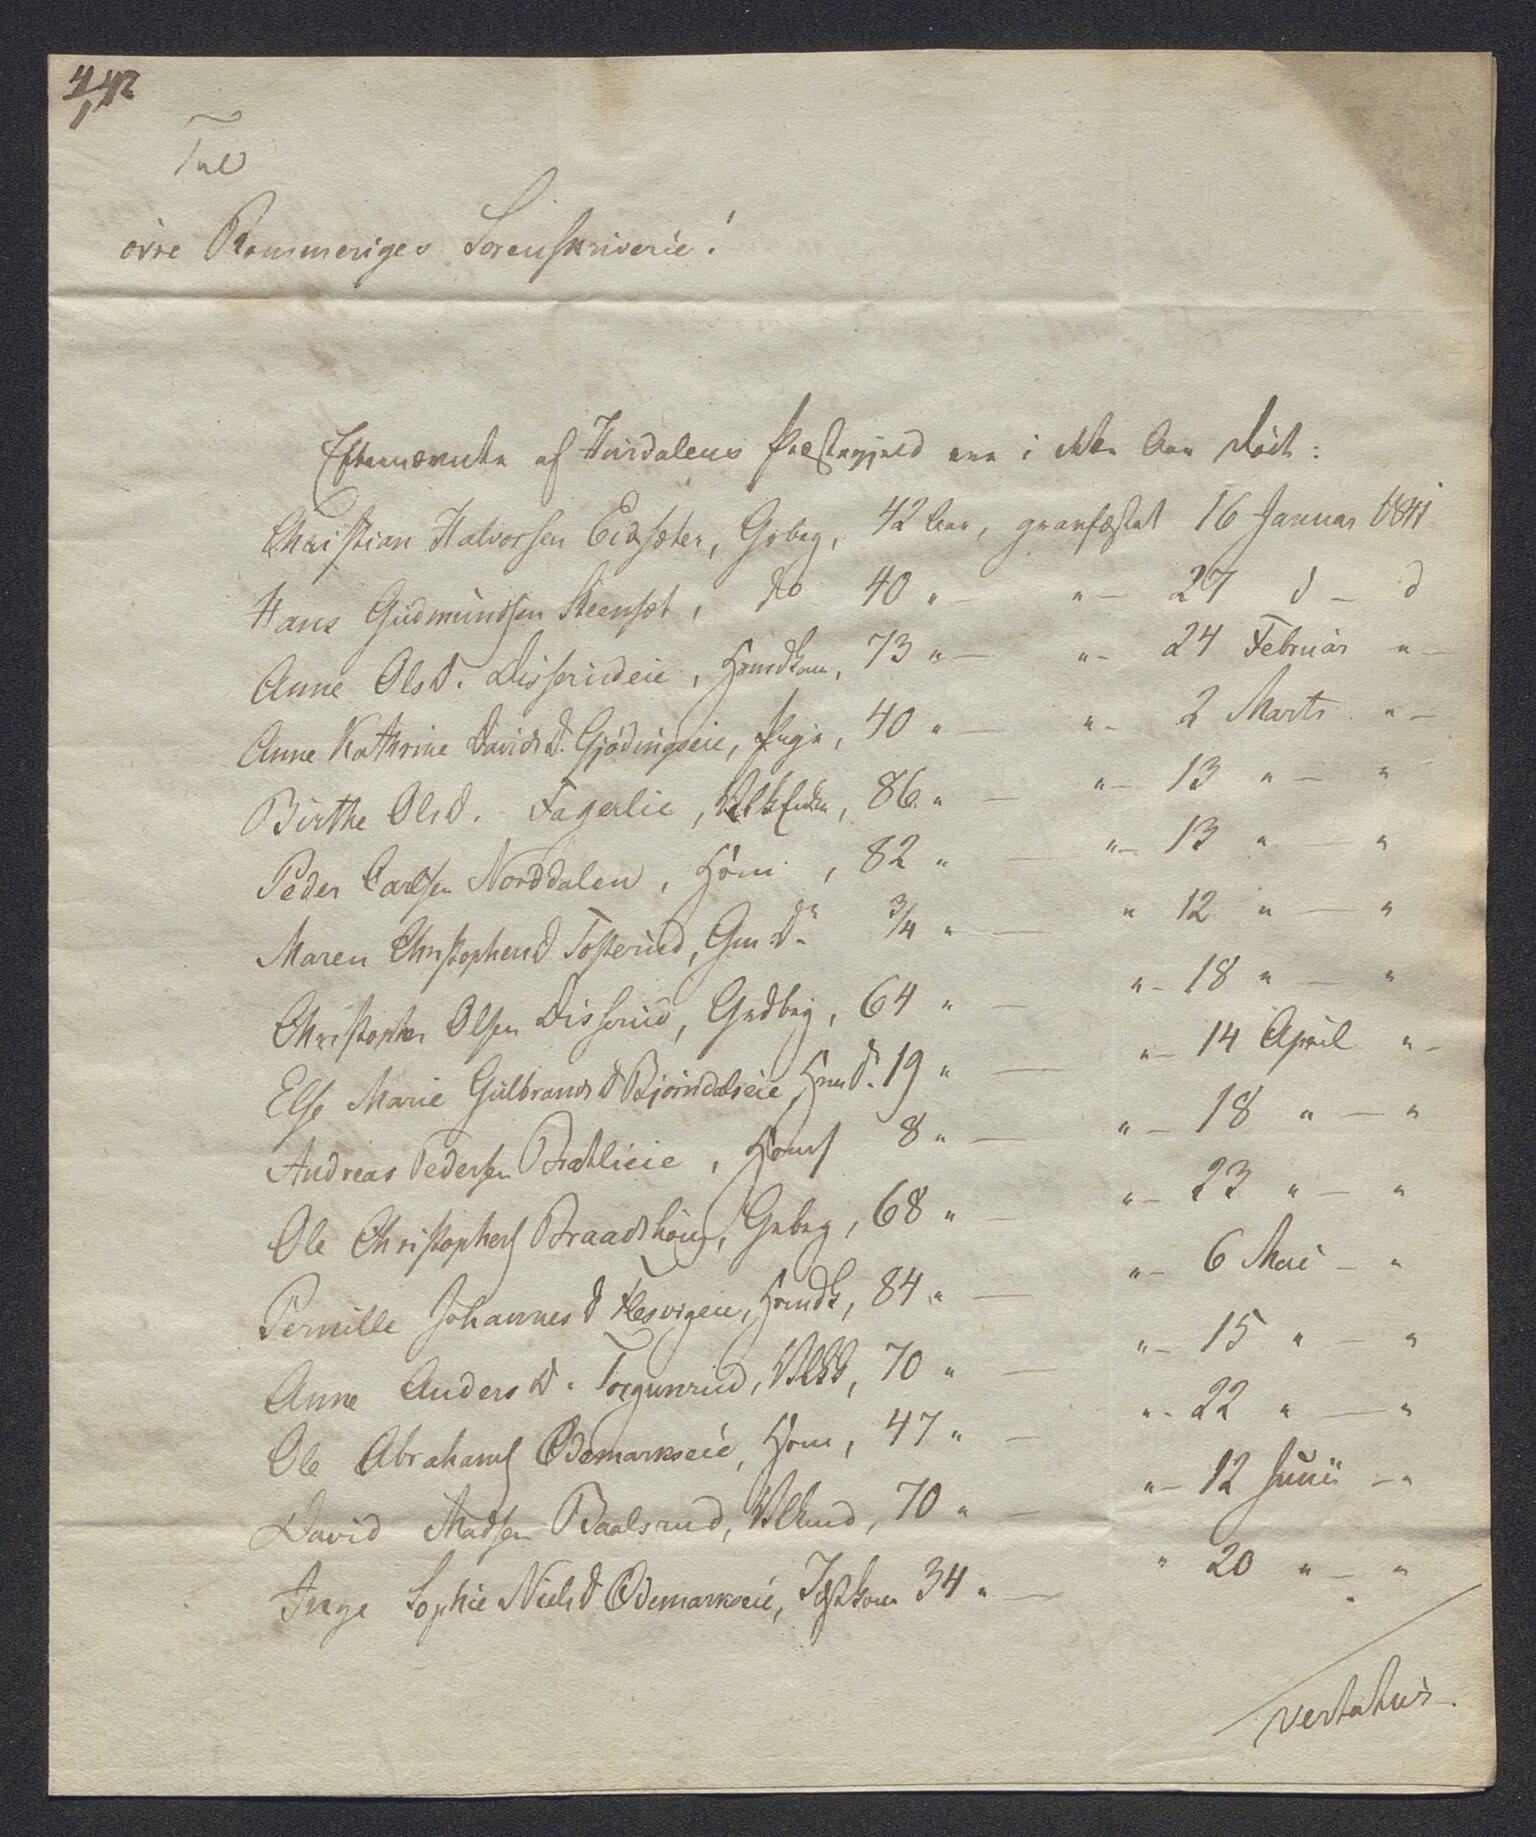 Til
övre Rommeriges Sorenskriverie!
Efternævnte af Hurdalens Præstegjeld ere i dette Aar döde:
Christian Halvorsen Eidsæter, Gbrbrg, 42 Aar, gravfæstet 16 Januar 1841
Hans Gudmundsen Steensæt, do 40 " — " — 27 d — d
Anne Olsd. Disserudeie, Hmdkone, 73 " — " — 24 Februar " —
Anne Kathrine Davidsd. Gjödingseie, Pige, 40 " — " — 2 Marts " —
Birthe Olsd. Fagerlie, Enke, 86 " — " — 13 " — "
Peder Carlsen Norddalen, Hsm, 82 " — " — 13 " — "
Maren Christophersd Tosterud, Gmdr 3/4 " — " 12 " — "
Christopher Olsen Disserud, Grdbrg, 64 " — " — 18 " — "
Else Marie Gulbrandsd Bjørndalseie Hmdr. 19 " — " — 14 April " —
Andreas Pedersen Bratlieie, Hsms 8 " — " — 18 " — "
Ole Christophers Braadshoug, Grbrg, 68 " — " — 23 " — "
Pernille Johannesd Flesvigeie, Hsmdk, 84 " — " — 6 Mai — "
Anne Andersd. Torgunrud, 70 " — " — 15 " — "
Ole Abrahams Ödemarkseie, Hsm, 47 " — " — 22 " — "
David Madsen Baalsrud, 70 " — " — 12 Junii — "
Inge Sophie Nielsd Ödemarkseie, Kone 34 " — " 20 " — "
vertatur.